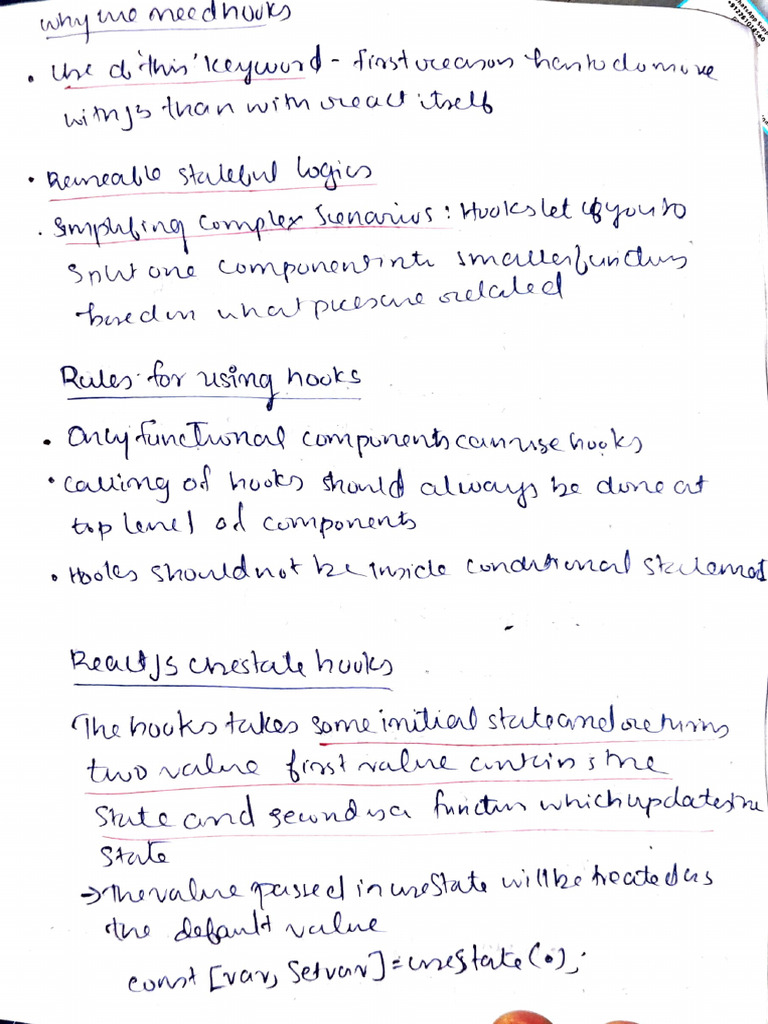 Why we need hooks
• Use of 'this' keyword - first reason has to do more
with js than with react itself
• Reuseable stateful logics
• Simplifing complex scenarios: Hooks let you to
split one component into smaller functions
based on what pieces are related
Rules for using hooks
• Only functional components can use hooks
• calling of hooks should always be done at
top level of components
• Hooks should not be inside conditional statement
React JS usestate hooks
The hooks takes some initial state and returns
two value first value contains the
state and second is a function which updates the
state
→ The value passed in useState will be treated as
the default value
const [var, setvar] = useState(0);